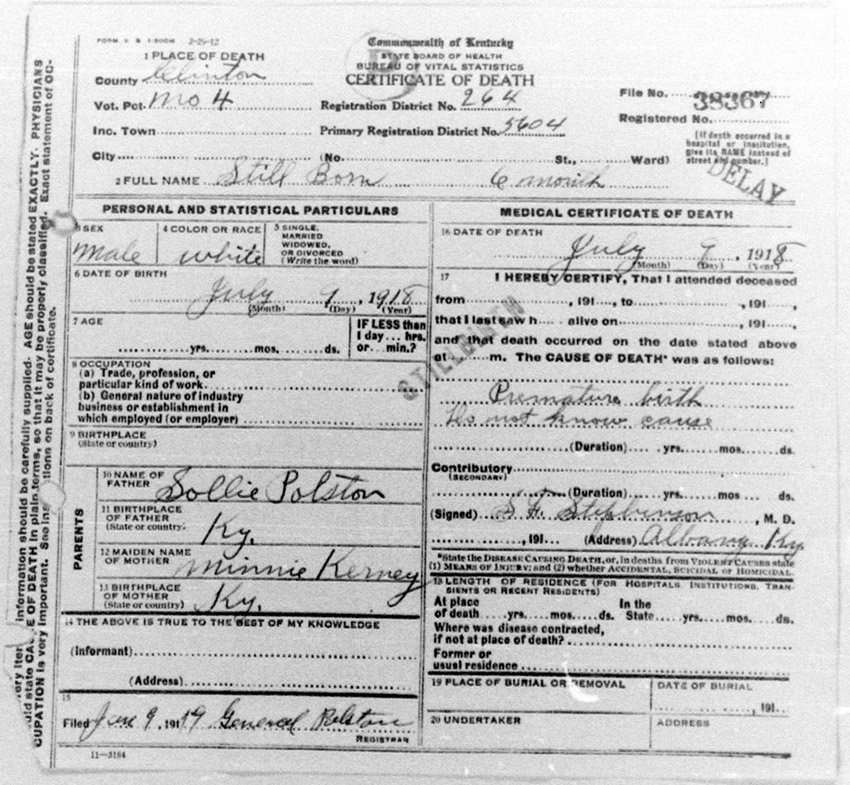 FORM V. S. 1-500M 2-25-12
Commonwealth of Kentucky
STATE BOARD OF HEALTH
BUREAU OF VITAL STATISTICS
CERTIFICATE OF DEATH
1 PLACE OF DEATH
County Clinton
Vot. Pct. No 4
Inc. Town
Registration District No. 264
Primary Registration District No. 5604
File No. 38367
Registered No.
[If death occurred in a hospital or institution, give its NAME instead of street and number.]
City (No. St., Ward)
DELAY
2 FULL NAME Still Born 6 month
PERSONAL AND STATISTICAL PARTICULARS
3 SEX
Male
4 COLOR OR RACE
white
5 SINGLE, MARRIED WIDOWED, OR DIVORCED (Write the word)
6 DATE OF BIRTH
July 7, 1918
(Month) (Day) (Year)
7 AGE
yrs. mos. ds.
IF LESS than
1 day hrs.
or min.?
8 OCCUPATION
(a) Trade, profession, or
particular kind of work
(b) General nature of industry
business or establishment in
which employed (or employer)
9 BIRTHPLACE
(State or country)
PARENTS
10 NAME OF
FATHER Sollie Polston
11 BIRTHPLACE
OF FATHER
(State or country) Ky.
12 MAIDEN NAME
OF MOTHER Minnie Kerney
13 BIRTHPLACE
OF MOTHER
(State or country) Ky.
14 THE ABOVE IS TRUE TO THE BEST OF MY KNOWLEDGE
(Informant)
(Address)
15
Filed Jan 9, 1919 General Polston
REGISTRAR
11-3184
MEDICAL CERTIFICATE OF DEATH
16 DATE OF DEATH
July 7, 1918
(Month) (Day) (Year)
17 I HEREBY CERTIFY, That I attended deceased
from , 191 , to , 191
that I last saw h alive on , 191 ,
and that death occurred on the date stated above
at m. The CAUSE OF DEATH* was as follows:
STILLBIRTH
Premature birth
Do not know cause
(Duration) yrs. mos. ds.
Contributory
(SECONDARY)
(Duration) yrs. mos. ds.
(Signed) S. F. Stephenson, M. D.
, 191 (Address) Albany Ky.
*State the DISEASE CAUSING DEATH, or, in deaths from VIOLENT CAUSES state
(1) MEANS OF INJURY; and (2) whether ACCIDENTAL, SUICIDAL or HOMICIDAL.
18 LENGTH OF RESIDENCE (FOR HOSPITALS, INSTITUTIONS, TRAN-
SIENTS OR RECENT RESIDENTS)
At place of death yrs. mos. ds. In the State yrs. mos. ds.
Where was disease contracted,
if not at place of death?
Former or
usual residence
19 PLACE OF BURIAL OR REMOVAL
DATE OF BURIAL
, 191
20 UNDERTAKER
ADDRESS
information should be carefully supplied. AGE should be stated EXACTLY. PHYSICIANS
E OF DEATH in plain terms, so that it may be properly classified. Exact statement of OC-
CUPATION is very important. See ins tions on back of certificate.